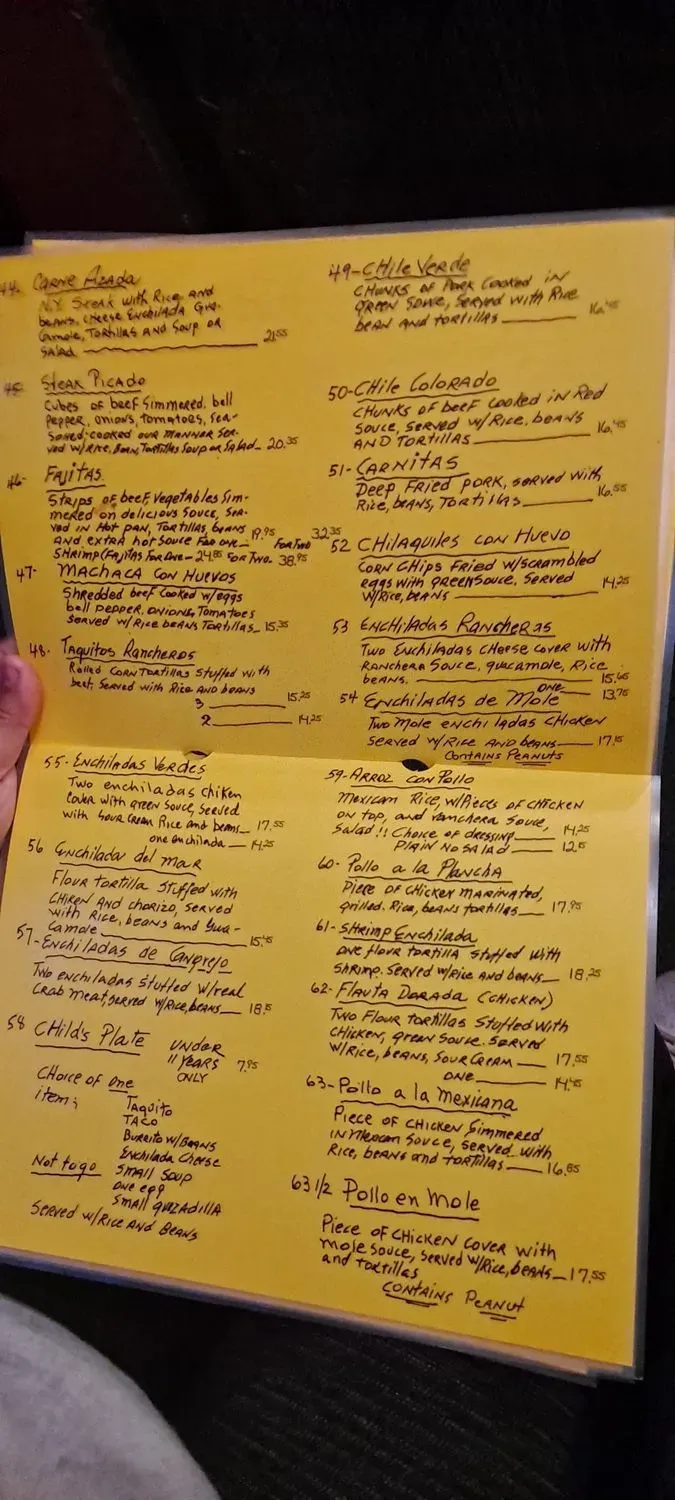 44. Carne Azada
N.Y. Steak with Rice and
beans, cheese Enchilada Gua-
camole, Tortillas and Soup or
Salad 21.55
45- Steak Picado
Cubes of beef Simmered, bell
Pepper, onions, tomatoes, sea-
soned-cooked our manner Ser-
ved w/Rice, Bean, Tortillas Soup or Salad- 20.35
46- Fajitas
Strips of beef, Vegetables Sim-
mered on delicious Souce, Ser-
ved in Hot pan, Tortillas, beans
and extra hot souce For one- 19.95 For Two 32.35
Shrimp (Fajitas For One- 24.85 For Two- 38.95
47- Machaca con Huevos
Shredded beef cooked w/eggs
bell pepper, onions, Tomatoes
served w/Rice beans Tortillas- 15.35
48- Taquitos Rancheros
Rolled corn tortillas stuffed with
beef, Served with Rice and beans
3 15.25
2 14.25
49- Chile Verde
Chunks of Pork Cooked in
green Souce, Served with Rice
bean and tortillas 16.45
50- Chile Colorado
Chunks of beef cooked in Red
souce, served w/Rice, beans
and tortillas 16.45
51- Carnitas
Deep Fried pork, served with
Rice, beans, Tortillas 16.55
52 Chilaquiles con Huevo
Corn chips fried w/scrambled
eggs with green souce, Served
w/Rice, beans 14.25
53 Enchiladas Rancheras
Two Enchiladas cheese cover with
Ranchera Souce, guacamole, Rice
beans. 15.65
one 13.75
54 Enchiladas de Mole
Two Mole enchiladas chicken
served w/Rice and beans 17.15
Contains Peanuts
55- Enchiladas Verdes
Two enchiladas chiken
cover with green souce, served
with sour cream Rice and beans- 17.55
one enchilada- 14.25
56 Enchilada del mar
Flour tortilla stuffed with
chiken and chorizo, served
with Rice, beans and gua-
camole 15.45
57- Enchiladas de Cangrejo
Two enchiladas stuffed w/real
crab meat, served w/Rice, beans 18.15
58 Child's Plate Under
11 years 7.95
only
Choice of one
item;
Taquito
Taco
Burrito w/Beans
Enchilada Cheese
Not to go Small Soup
one egg
Small quezadilla
Served w/Rice and Beans
59- Arroz con Pollo
Mexican Rice, w/Pieces of chicken
on top, and ranchera souce,
Salad!! Choice of dressing 14.25
Plain no salad 12.15
60- Pollo a la Plancha
Piece of chicken marinated,
grilled. Rice, beans tortillas 17.95
61- Shrimp Enchilada
One flour tortilla stuffed with
shrimp. Served w/Rice and beans 18.25
62- Flauta Dorada (chicken)
Two flour tortillas stuffed with
chicken, green souce. served
w/Rice, beans, sour cream 17.55
one 14.45
63- Pollo a la Mexicana
Piece of chicken simmered
in mexican souce, served with
Rice, beans and tortillas 16.85
63 1/2 Pollo en Mole
Piece of chicken cover with
mole souce, served w/Rice, beans- 17.55
and tortillas
Contains Peanut